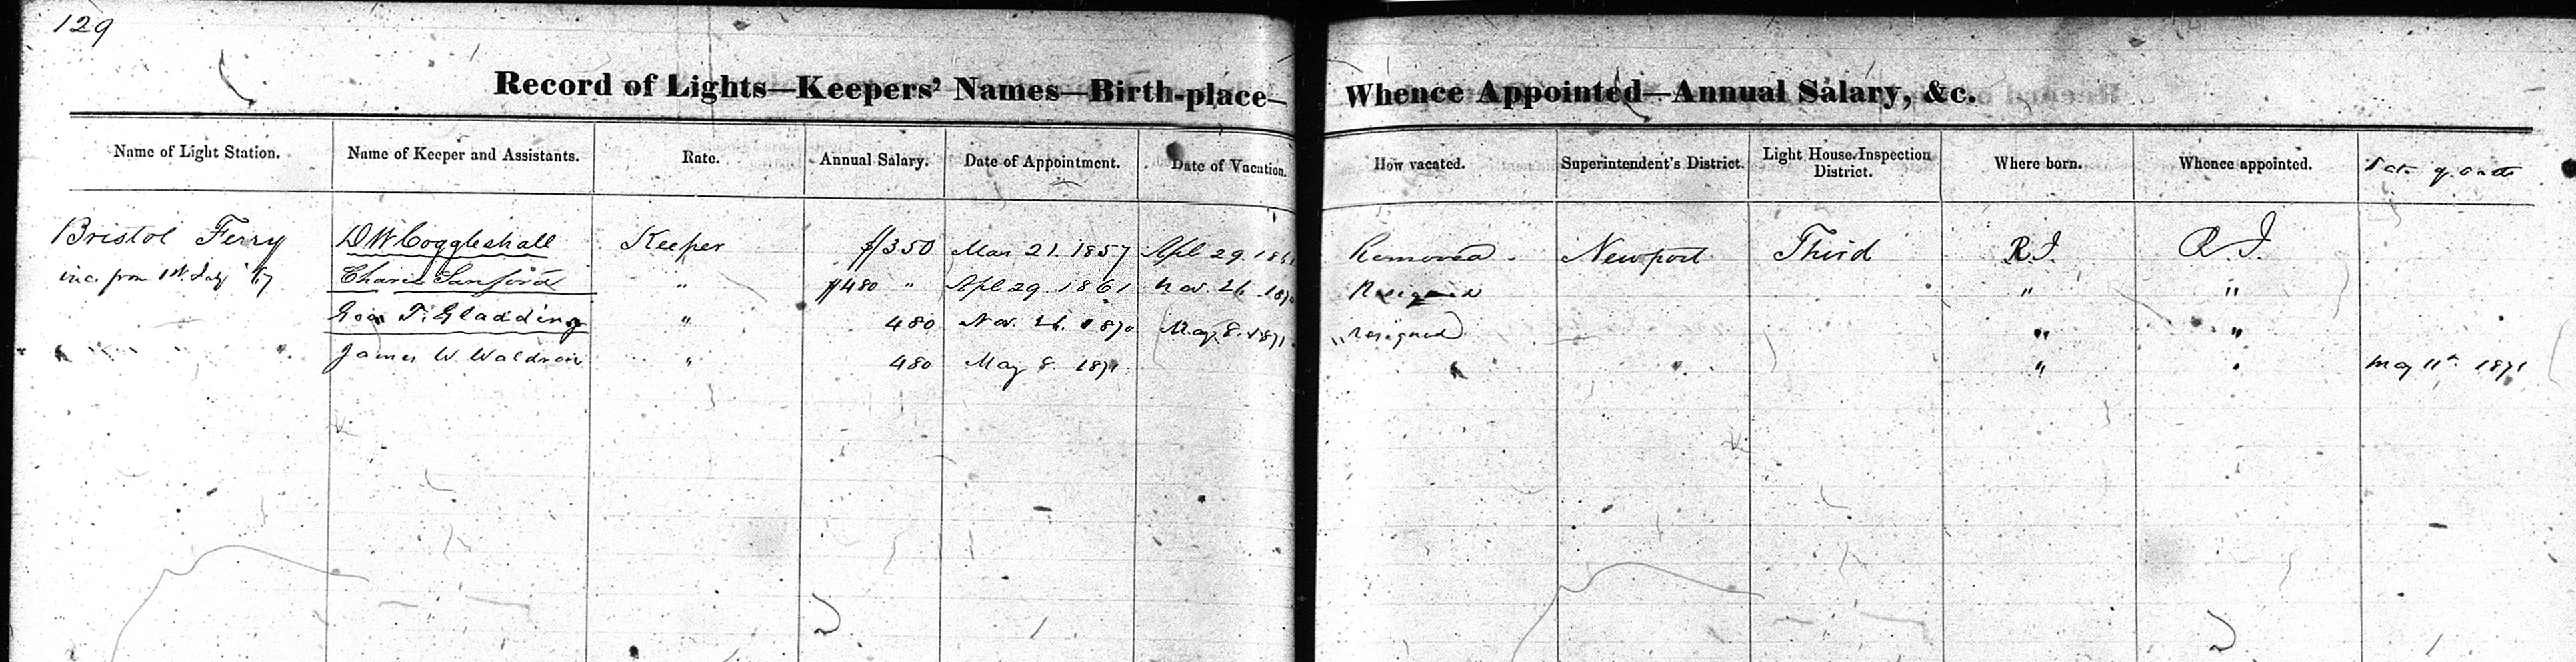 129
Record of Lights—Keepers' Names—Birth-place— Whence Appointed—Annual Salary, &c.
Name of Light Station. Name of Keeper and Assistants. Rate. Annual Salary. Date of Appointment. Date of Vacation. How vacated. Superintendent's District. Light House Inspection District. Where born. Whence appointed. Date of Oath
Bristol Ferry D W Coggleshall Keeper $350 Mar 21. 1857 Apl 29. 1861 Removed - Newport Third R.I. R.I.
inc. from 1st July '67 Charles Sanford " $480 " Apl 29. 1861 Nov. 26. 1870 Resigned " "
Geo. T. Gladding " 480 Nov. 26. 1870 May 8. 1871. Resigned " "
James W. Waldron " 480 May 8. 1871 " " May 11th 1871